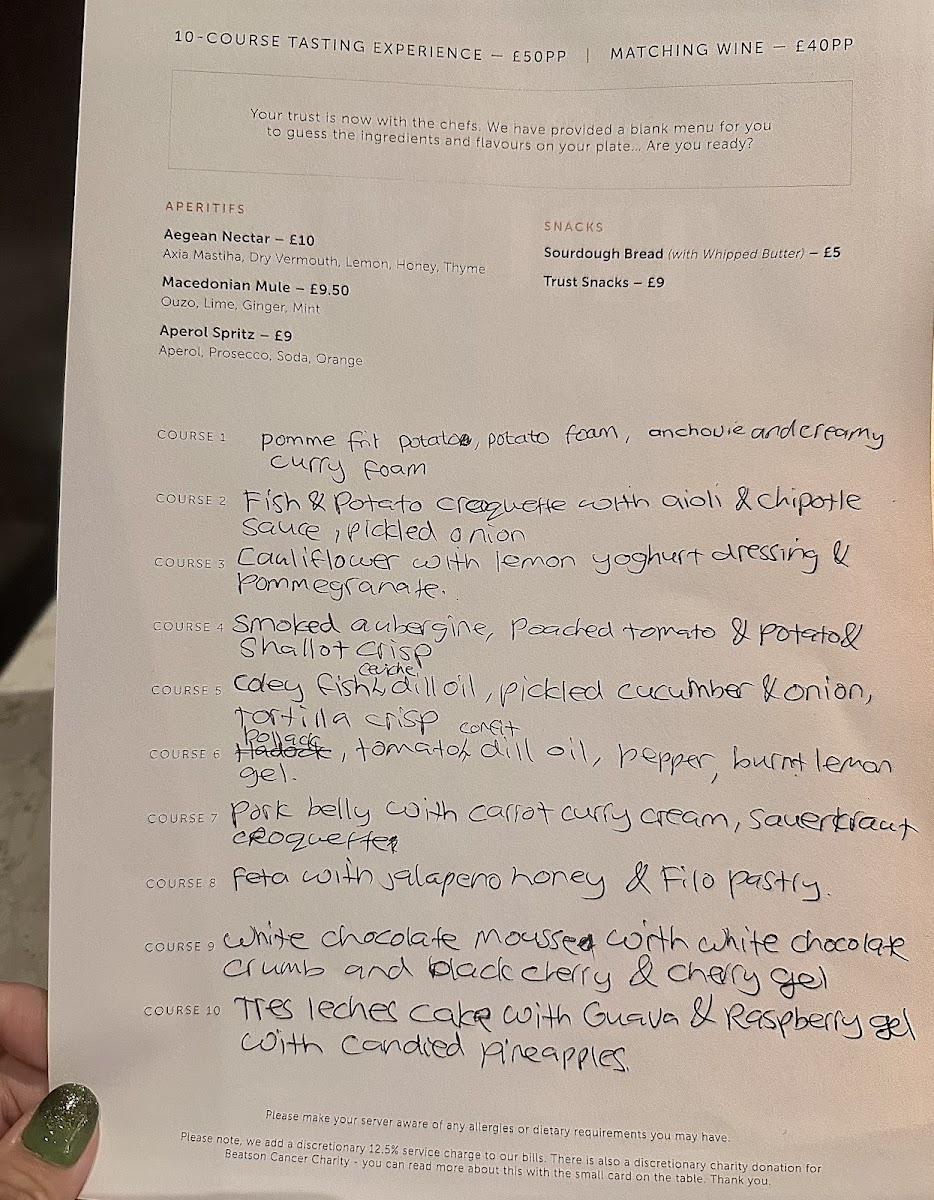 10-COURSE TASTING EXPERIENCE — £50PP | MATCHING WINE — £40PP
Your trust is now with the chefs. We have provided a blank menu for you
to guess the ingredients and flavours on your plate... Are you ready?
APERITIFS
Aegean Nectar – £10
Axia Mastiha, Dry Vermouth, Lemon, Honey, Thyme
Macedonian Mule – £9.50
Ouzo, Lime, Ginger, Mint
Aperol Spritz – £9
Aperol, Prosecco, Soda, Orange
SNACKS
Sourdough Bread (with Whipped Butter) – £5
Trust Snacks – £9
COURSE 1 pomme frit potato, potato foam, anchovie and creamy
curry foam
COURSE 2 Fish & Potato croquette with aioli & chipotle
sauce, pickled onion
COURSE 3 Cauliflower with lemon yoghurt dressing &
pommegranate.
COURSE 4 Smoked aubergine, poached tomato & potato &
Shallot crisp
COURSE 5 Coley fish ceviche, dill oil, pickled cucumber & onion,
tortilla crisp
COURSE 6 Hadock Pollack, tomato confit, dill oil, pepper, burnt lemon
gel.
COURSE 7 Pork belly with carrot curry cream, sauerkraut
croquette
COURSE 8 Feta with jalapeno honey & Filo pastry.
COURSE 9 White chocolate mousse with white chocolate
crumb and black cherry & cherry gel
COURSE 10 Tres leches cake with Guava & Raspberry gel
with candied pineapples.
Please make your server aware of any allergies or dietary requirements you may have.
Please note, we add a discretionary 12.5% service charge to our bills. There is also a discretionary charity donation for
Beatson Cancer Charity - you can read more about this with the small card on the table. Thank you.